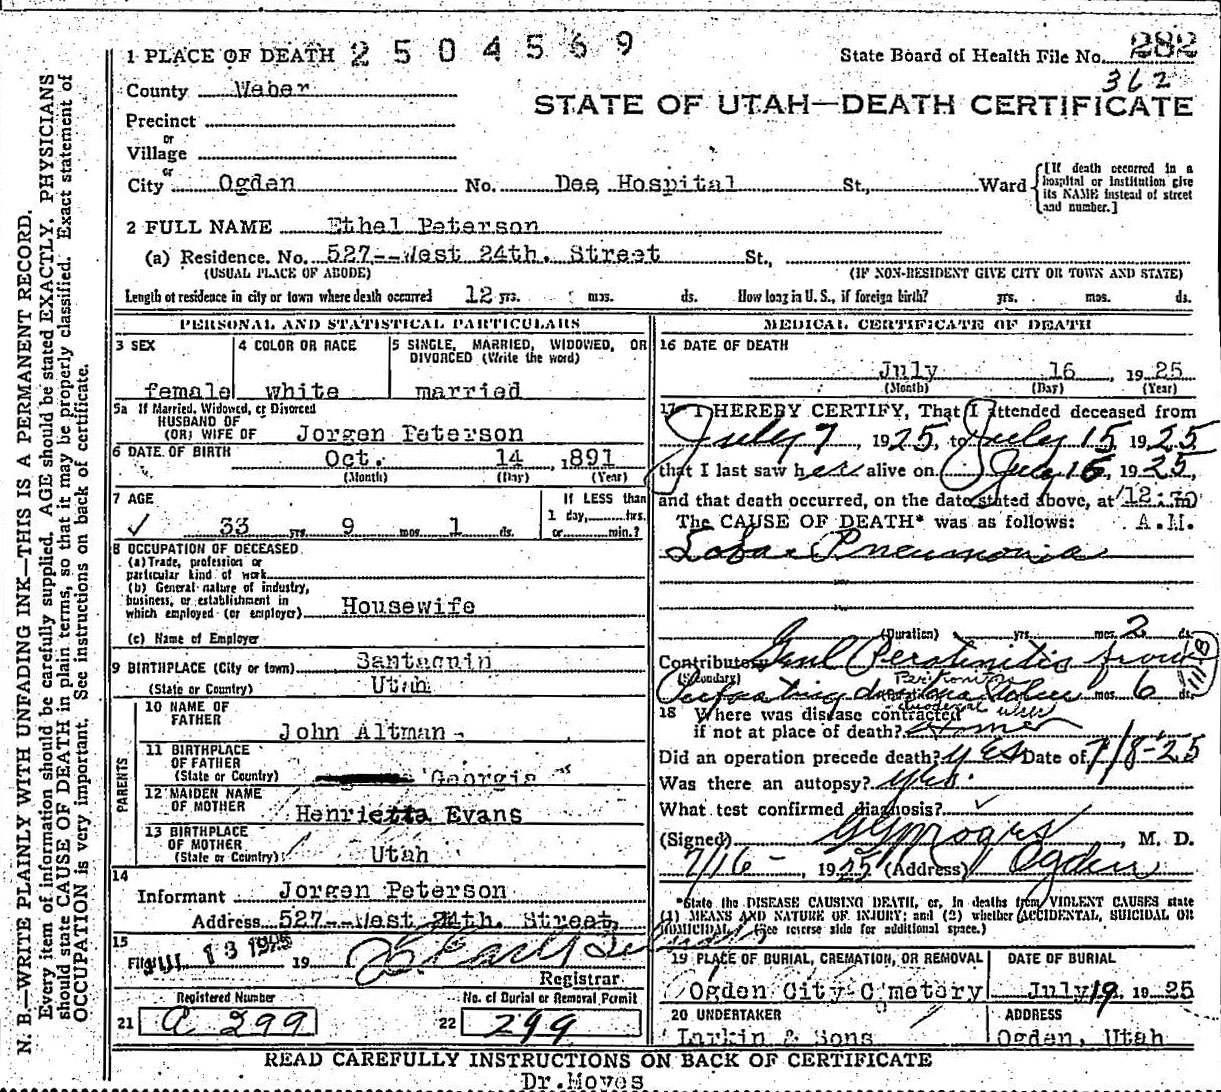 1 PLACE OF DEATH 2504569
State Board of Health File No. 282
362
County Weber
STATE OF UTAH—DEATH CERTIFICATE
Precinct
or
Village
or
City Ogden No. Dee Hospital St., Ward
[If death occurred in a hospital or institution give its NAME instead of street and number.]
2 FULL NAME Ethel Peterson
(a) Residence. No. 527--West 24th. Street St.,
(USUAL PLACE OF ABODE) (IF NON-RESIDENT GIVE CITY OR TOWN AND STATE)
Length of residence in city or town where death occurred 12 yrs. mos. ds. How long in U. S., if foreign birth? yrs. mos. ds.
PERSONAL AND STATISTICAL PARTICULARS
3 SEX 4 COLOR OR RACE 5 SINGLE, MARRIED, WIDOWED, OR DIVORCED (Write the word)
female white married
5a If Married, Widowed, or Divorced
HUSBAND OF
(OR) WIFE OF Jorgen Peterson
6 DATE OF BIRTH Oct. 14 ,891
(Month) (Day) (Year)
7 AGE If LESS than
1 day, hrs.
✓ 33 yrs. 9 mos. 1 ds. or min.?
8 OCCUPATION OF DECEASED
(a) Trade, profession or
particular kind of work
(b) General nature of industry,
business, or establishment in
which employed (or employer) Housewife
(c) Name of Employer
9 BIRTHPLACE (City or town) Santaquin
(State or Country) Utah
PARENTS
10 NAME OF
FATHER John Altman
11 BIRTHPLACE
OF FATHER
(State or Country) Georgia
12 MAIDEN NAME
OF MOTHER Henrietta Evans
13 BIRTHPLACE
OF MOTHER
(State or Country) Utah
14
Informant Jorgen Peterson
Address 527--West 24th. Street,
15
Filed JUL 1925 19
Registrar
Registered Number No. of Burial or Removal Permit
21 a 299 22 299
MEDICAL CERTIFICATE OF DEATH
16 DATE OF DEATH
July 16, 1925
(Month) (Day) (Year)
17 I HEREBY CERTIFY, That I attended deceased from
July 7, 1925, to July 15, 1925
that I last saw her alive on July 16, 1925,
and that death occurred, on the date stated above, at 12:30 m
The CAUSE OF DEATH* was as follows: A.M.
Lobar Pneumonia
(Duration) yrs. mos. 2 ds.
Contributory Genl Peratinitis from
(Secondary) Peritonitis
mos. 6 ds.
duodenal ulcer
18 Where was disease contracted
if not at place of death? Home
Did an operation precede death? yes Date of 7/8-25
Was there an autopsy? yes.
What test confirmed diagnosis? ✓
(Signed) , M. D.
7/16- 1925 (Address) Ogden
*State the DISEASE CAUSING DEATH, or, in deaths from VIOLENT CAUSES state
(1) MEANS AND NATURE OF INJURY; and (2) whether ACCIDENTAL, SUICIDAL OR
HOMICIDAL. (See reverse side for additional space.)
19 PLACE OF BURIAL, CREMATION, OR REMOVAL DATE OF BURIAL
Ogden City Cmetery July 19, 1925
20 UNDERTAKER ADDRESS
Larkin & Sons Ogden, Utah
READ CAREFULLY INSTRUCTIONS ON BACK OF CERTIFICATE
Dr.Moyes
N. B.—WRITE PLAINLY WITH UNFADING INK—THIS IS A PERMANENT RECORD.
Every item of information should be carefully supplied. AGE should be stated EXACTLY. PHYSICIANS
should state CAUSE OF DEATH in plain terms, so that it may be properly classified. Exact statement of
OCCUPATION is very important. See instructions on back of certificate.